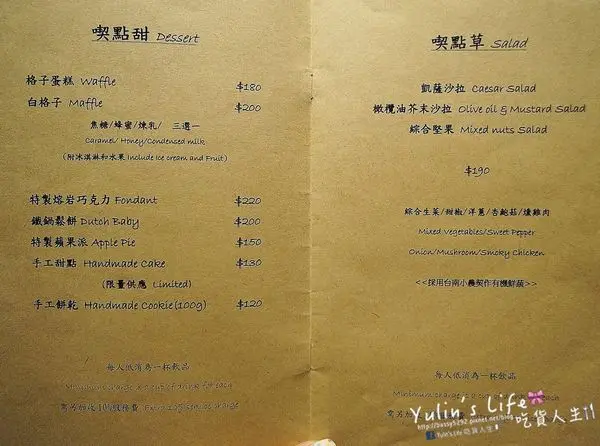 喫點甜 Dessert
格子蛋糕 Waffle $180
白格子 Maffle $200
焦糖/蜂蜜/煉乳/ 三選一
Caramel/ Honey/Condensed milk
(附冰淇淋和水果 Include Ice cream and Fruit)
特製熔岩巧克力 Fondant $220
鐵鍋鬆餅 Dutch Baby $200
特製蘋果派 Apple Pie $150
手工甜點 Handmade Cake $130
(限量供應 Limited)
手工餅乾 Handmade Cookie(100g) $120
每人低消為一杯飲品
Minimum charge is a cup of drink for each
需另加收 10%服務費 Extra 10% service charge
喫點草 Salad
凱薩沙拉 Caesar Salad
橄欖油芥末沙拉 Olive oil & Mustard Salad
綜合堅果 Mixed nuts Salad
$190
綜合生菜/甜椒/洋蔥/杏鮑菇/燻雞肉
Mixed Vegetables/Sweet Pepper
Onion/Mushroom/Smoky Chicken
<<採用台南小農契作有機鮮蔬>>
每人低消為一杯飲品
Minimum charge is a cup of each
需另加收
Yulin's Life 吃貨人生!!
http://bussy5292.pixnet.net/blog
Yulin's Life 吃貨人生